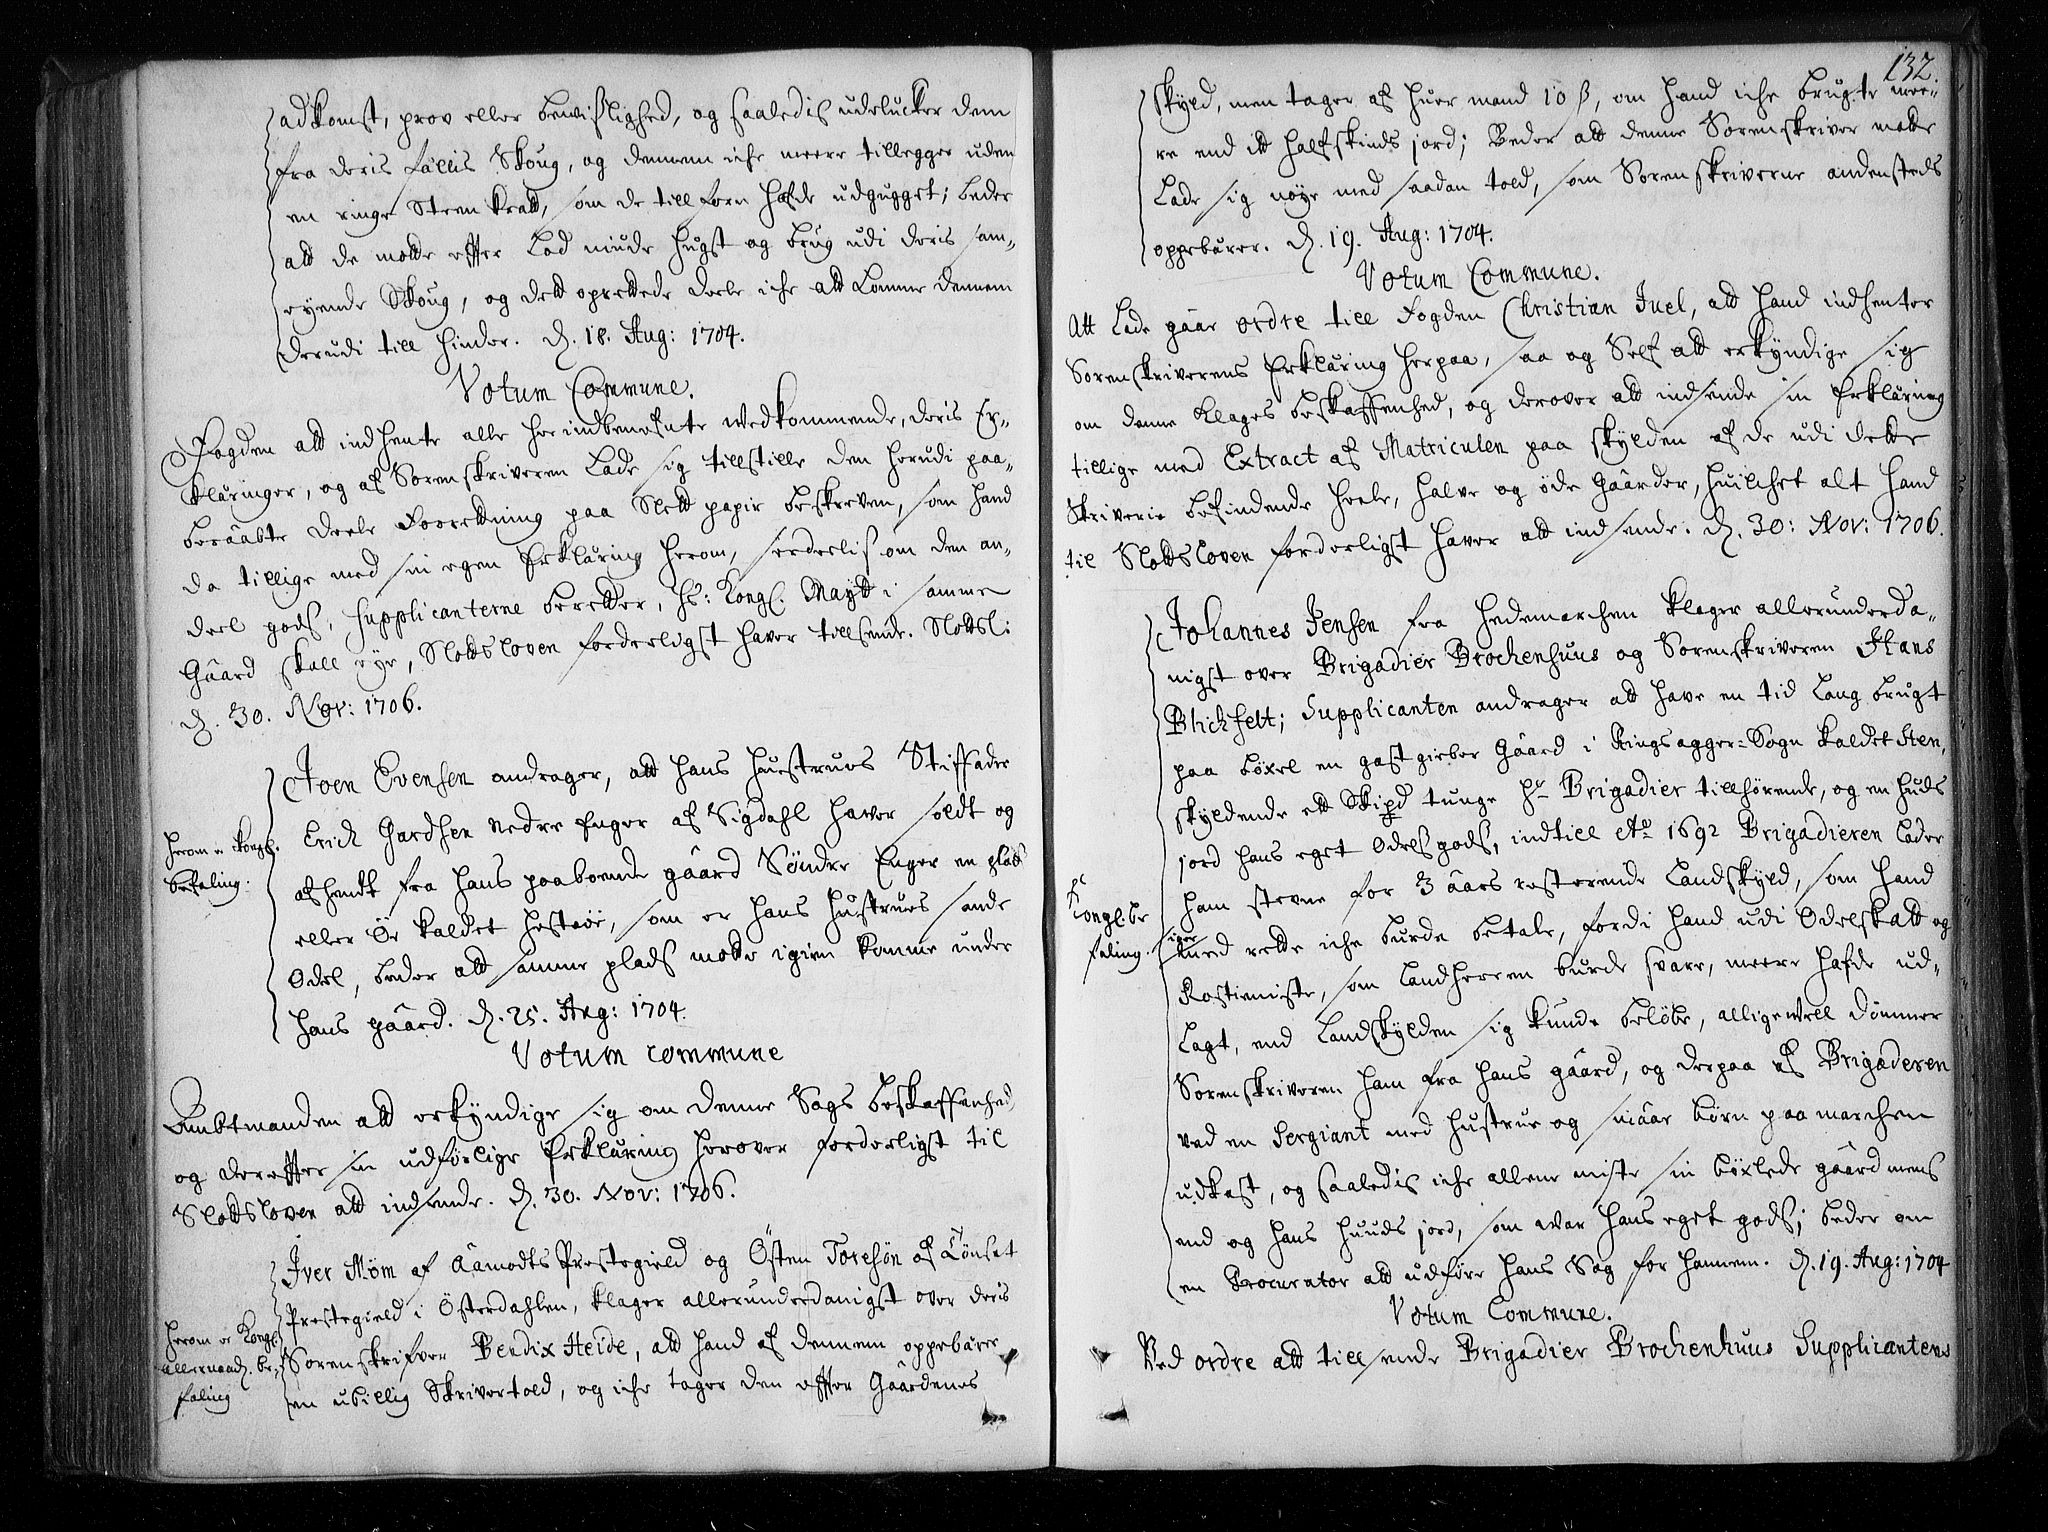 adkomst, prov eller bevislighed, og saaledis udelucker dem
fra deris fællis Skoug, og dennem iche meere tillegger uden
en ringe Steen kratt, som de till forn hafde udhugget; beder
att de motte effter Lod niude hugst og brug udi deris sam-
eyende Skoug, og dett oprettede deele iche att komme dennem
derudi till hinder. d. 18. Aug: 1704.
Votum Commune.
Fogden att indhente alle herindbenefnte wedkommende, deris Er-
klæringer, og af Sorenskriveren Lade sig tillstille den herudi paa-
beraabte deele Forretning paa Slett papir beskreven, som hand
da tillige med sin egen Erklæring herom, serdelis om den an-
deel gods, Supplicanterne beretter, hs: Kongl. Maytt i samme
Gaard skall eye, Slottsloven forderligst haver tillsende. Slottsl:
d. 30. Nov: 1706.
Joen Evensen andrager, att hans huestrues Stiffader
Erich Gardsen Nedre Enger af Sigdahl haver soldt og
herom er Kongl.
befaling:
afhendt fra hans paaboende gaard Søndre Enger en plads
eller Øe kaldet hestøe, som er hans hustrues sande
Odel, beder att samme plads motte igien komme under
hans gaard. d. 25. Aug: 1704.
Votum commune
Ambtmanden att erkyndige sig om denne Sags beskaffenhed
og dereffter sin udførlige Erklæring herover forderligst til
Slottsloven att indsende. d. 30. Nov: 1706.
Iver Møm af Aamodts Prestegield og Østen Toresøn af Tønset
Prestegield i Østerdahlen, klager allerunderdanigst over deris
herom er Kongl.
allernaad. be-
faling
Sorenskrifver Bendix Heide, att hand af dennem oppebærer
en ubillig Skrivertold, og iche tager den effter Gaardenes
132.
skyld, men tager af huer mand 10 ß, om hand iche brugte mee-
re end itt halfskinds jord; Beder att denne Sorenskriver motte
Lade sig nøye med saadan told, som Sorenskriverne andensteds
oppebærer. d. 19. Aug: 1704.
Votum Commune.
Att Lade gaar ordre till Fogden Christian Juel, att hand indhenter
Sorenskriverens Erklæring herpaa, saa og Self att erkyndige sig
om denne Klages beskaffenhed, og derover att indsende sin Erklæring
tillige med Extract af Matriculen paa skylden af de udi dette
Skriverie befindende heele, halve og øde Gaarder, huilchet alt hand
til Slottsloven forderligst haver att indsende. d. 30: Nov: 1706.
Johannes Jensen fra Hedemarchen klager allerunderda-
nigst over Brigadier Brochenhuus og Sorenskriveren Hans
Blichfelt; Supplicanten andrager att have en tid Lang brugt
paa bøxel en gastgieber Gaard i Ringsagger-Sogn kaldet Sten,
skyldende ett Skipd tunge hr Brigadier tillhørende, og en huds
jord hans eget Odelsgods, indtill Ao 1692 Brigadieren Lader
Kongl. be
faling.
ham stevne for 3 aars resterende Landskyld, som hand
med rette iche burde betale, fordi hand udi Odelskatt og
Rostieniste, som Landherren burde svare, meere hafde ud-
Lagt, end Landskylden sig kunde beløbe, alligewell dømmer
Sorenskriveren ham fra hans gaard, og derpaa af Brigaderen
ved en Sergiant med hustrue og smaae børn paa marchen
udkast, og saaledis iche allene miste sin bøxlede gaard mens
end og hans huuds jord, som war hans eget gods; beder om
en Procurator att udføre hans Sag for hannem. d. 19. Aug: 1704
Votum Commune.
Ved ordre att tillsende Brigadier Brochenhuus Supplicantens